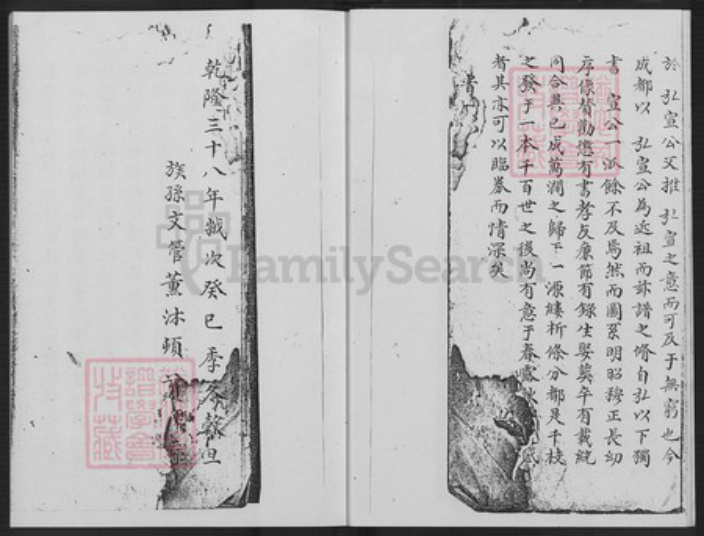 於 弘宣公又推 弘宣之意而可及于無窮也今
成都以 弘宣公為近祖而詳譜之脩自弘以下獨
書 宣公一派餘不及焉然而圖系明昭穆正長幼
序像替勸懲有書孝友廉節有錄生娶葬卒有載統
同合異已成萬澗之歸于一源縷析條分都是千枝
之發于一本千百世之後尚有意于春露
者其亦可以臨卷而情深矣
乾隆三十八年歲次癸巳季冬穀旦
族孫文管薰沐頓
FamilySearch